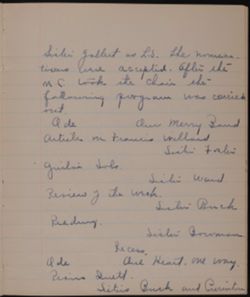 Sister Gilbert as L.S. The nomina-
tions were accepted. After the
M.C. took the chair the
following program was carried
out
Ode Our Merry Band
Article on Francis Willard
Sister Foster
Guitar Solo.
Sister Ward
Review of the Work.
Sister Buck
Reading.
Sister Bowman
Recess.
Ode One Heart. One Way.
Piano Duett.
Sisters Buck and